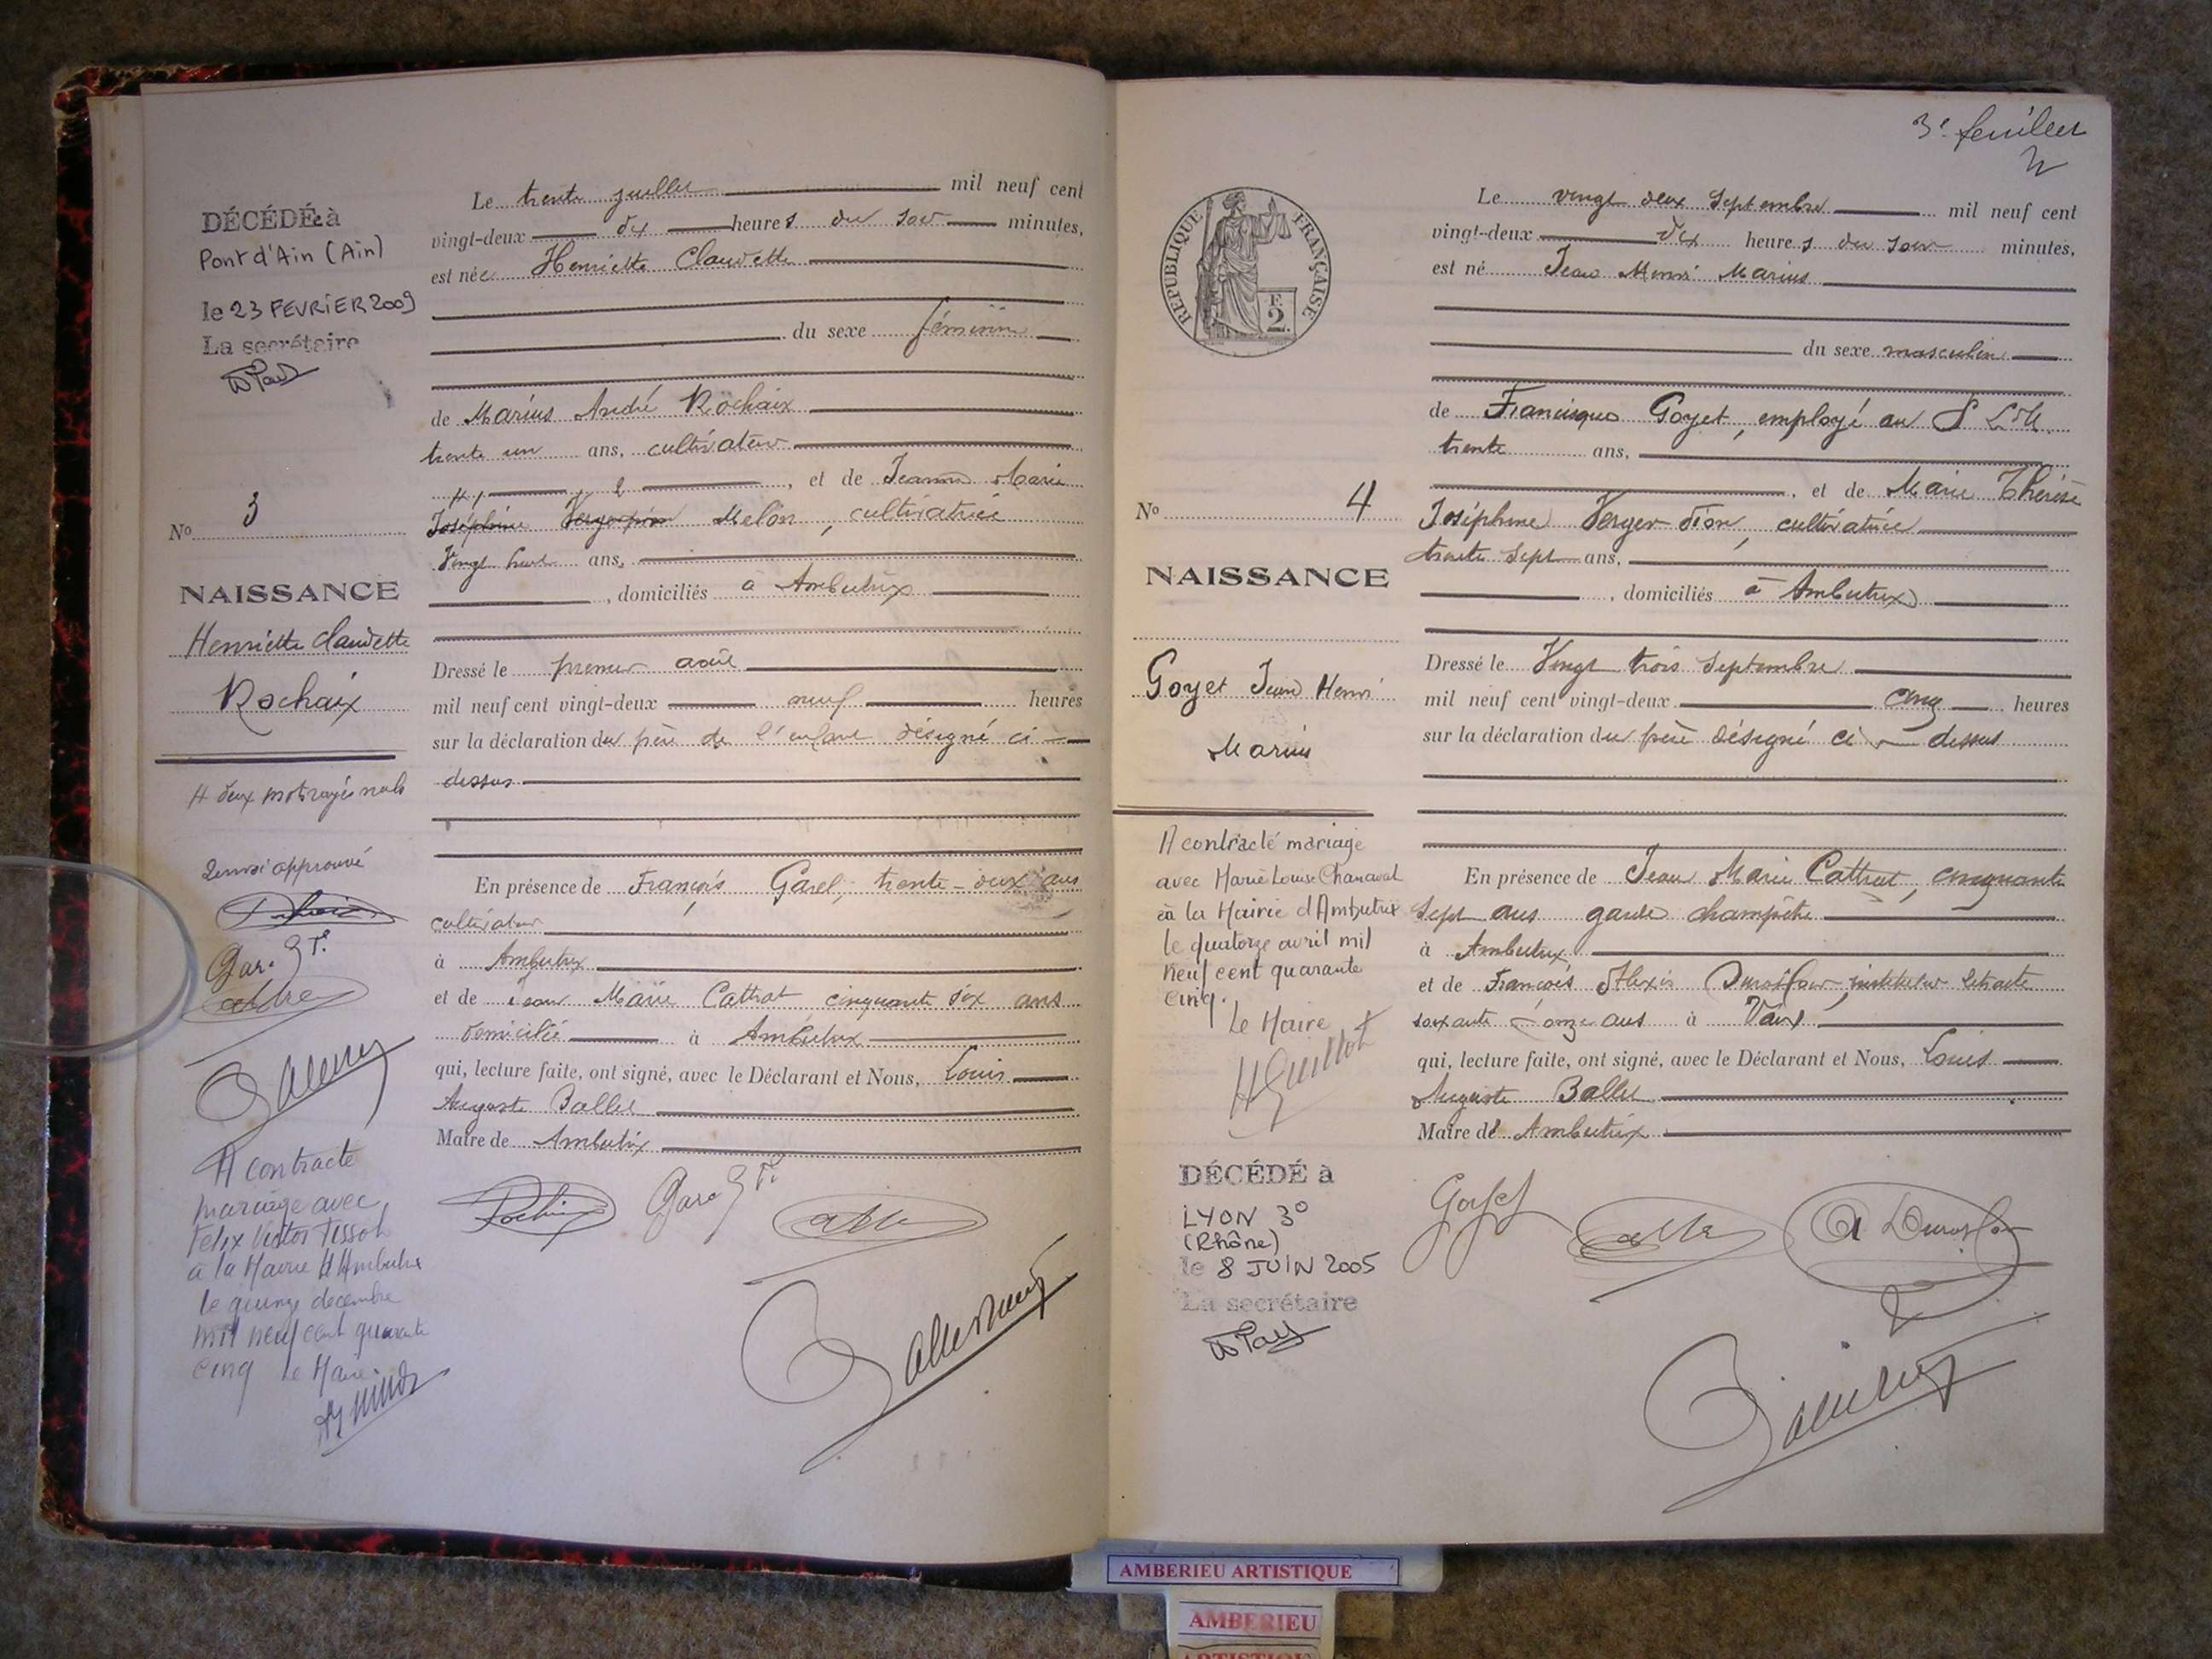 DÉCÉDÉe à
Pont d'Ain (Ain)
le 23 FEVRIER 2009
La secrétaire
No 3
NAISSANCE
Henriette Claudette
Rochaix
deux mots rayés nuls
Renvoi approuvé
A contracté
mariage avec
Félix Victor Tissot
à la Mairie d'Ambutrix
le quinze décembre
mil neuf cent quarante
cinq Le Maire
Le trente juillet mil neuf cent
vingt-deux dix heures du soir minutes,
est née Henriette Claudette
du sexe féminin
de Marius André Rochaix
trente un ans, cultivateur
, et de Jeanne Marie
Joséphine Melon, cultivatrice
Vingt huit ans,
, domiciliés à Ambutrix
Dressé le premier août
mil neuf cent vingt-deux neuf heures
sur la déclaration du père de l'enfant désigné ci-
dessus
En présence de François Garel, trente-deux ans
cultivateur
à Ambutrix
et de Jean Marie Cattrat cinquante six ans
domicilié à Ambutrix
qui, lecture faite, ont signé, avec le Déclarant et Nous, Louis
Auguste Ballet
Maire de Ambutrix
3e feuillet
RÉPUBLIQUE FRANÇAISE
F.
2.
No 4
NAISSANCE
Goyet Jean Henri
Marius
A contracté mariage
avec Marie Louise Chanaval
à la Mairie d'Ambutrix
le quatorze avril mil
neuf cent quarante
cinq.
Le Maire
HGuillot
DÉCÉDÉ à
LYON 3°
(Rhône)
le 8 JUIN 2005
La secrétaire
Le vingt deux Septembre mil neuf cent
vingt-deux dix heures du soir minutes,
est né Jean Henri Marius
du sexe masculin
de Francisque Goyet, employé au P.L.M.
trente ans,
, et de Marie Thérèse
Joséphine Verger-Dion, cultivatrice
trente sept ans,
, domiciliés à Ambutrix
Dressé le Vingt trois Septembre
mil neuf cent vingt-deux cinq heures
sur la déclaration du père désigné ci-dessus
En présence de Jean Marie Cattrat, cinquante
sept ans garde champêtre
à Ambutrix
et de François Alexis instituteur retraité
soixante onze ans à Vaux
qui, lecture faite, ont signé, avec le Déclarant et Nous, Louis
Auguste Ballet
Maire de Ambutrix
Goyet
AMBERIEU ARTISTIQUE
AMBERIEU
ARTISTIQUE